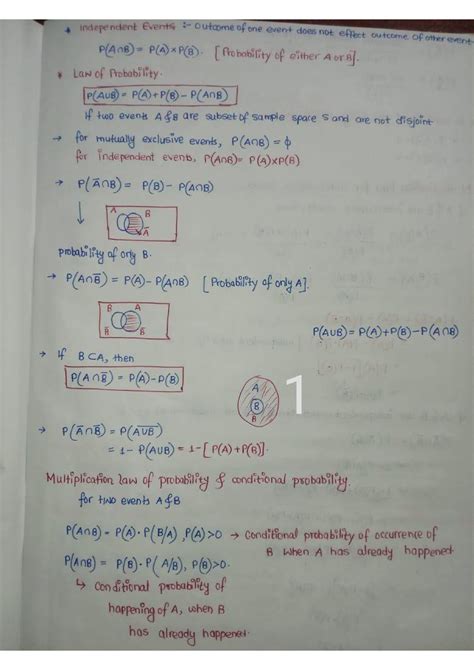 * Independent Events :- Outcome of one event does not effect outcome of other event.
P(A∩B) = P(A)×P(B). [Probability of either A or B].
* Law of Probability.
P(A∪B) = P(A)+P(B)-P(A∩B)
If two events A & B are subset of sample space S and are not disjoint
→ for mutually exclusive events, P(A∩B) = ϕ
for independent events, P(A∩B)= P(A)×P(B)
→ P(A̅∩B) = P(B) - P(A∩B)
A B
A̅
probability of only B.
→ P(A∩B̅) = P(A)- P(A∩B) [Probability of only A].
B A
B̅ B̅
P(A∪B) = P(A)+P(B)-P(A∩B)
→ If B⊂A, then
P(A∩B̅) = P(A)-P(B)
A
B
B̅
1
→ P(A̅∩B̅) = P(A̅∪̅B̅)
= 1- P(A∪B) = 1-[P(A)+P(B)].
Multiplication law of probability & conditional probability.
for two events A&B
P(A∩B) = P(A)·P(B/A), P(A)>0 → Conditional probability of occurrence of
B when A has already happened
P(A∩B) = P(B)·P(A/B), P(B)>0.
↳ Conditional probability of
happening of A, when B
has already happened.